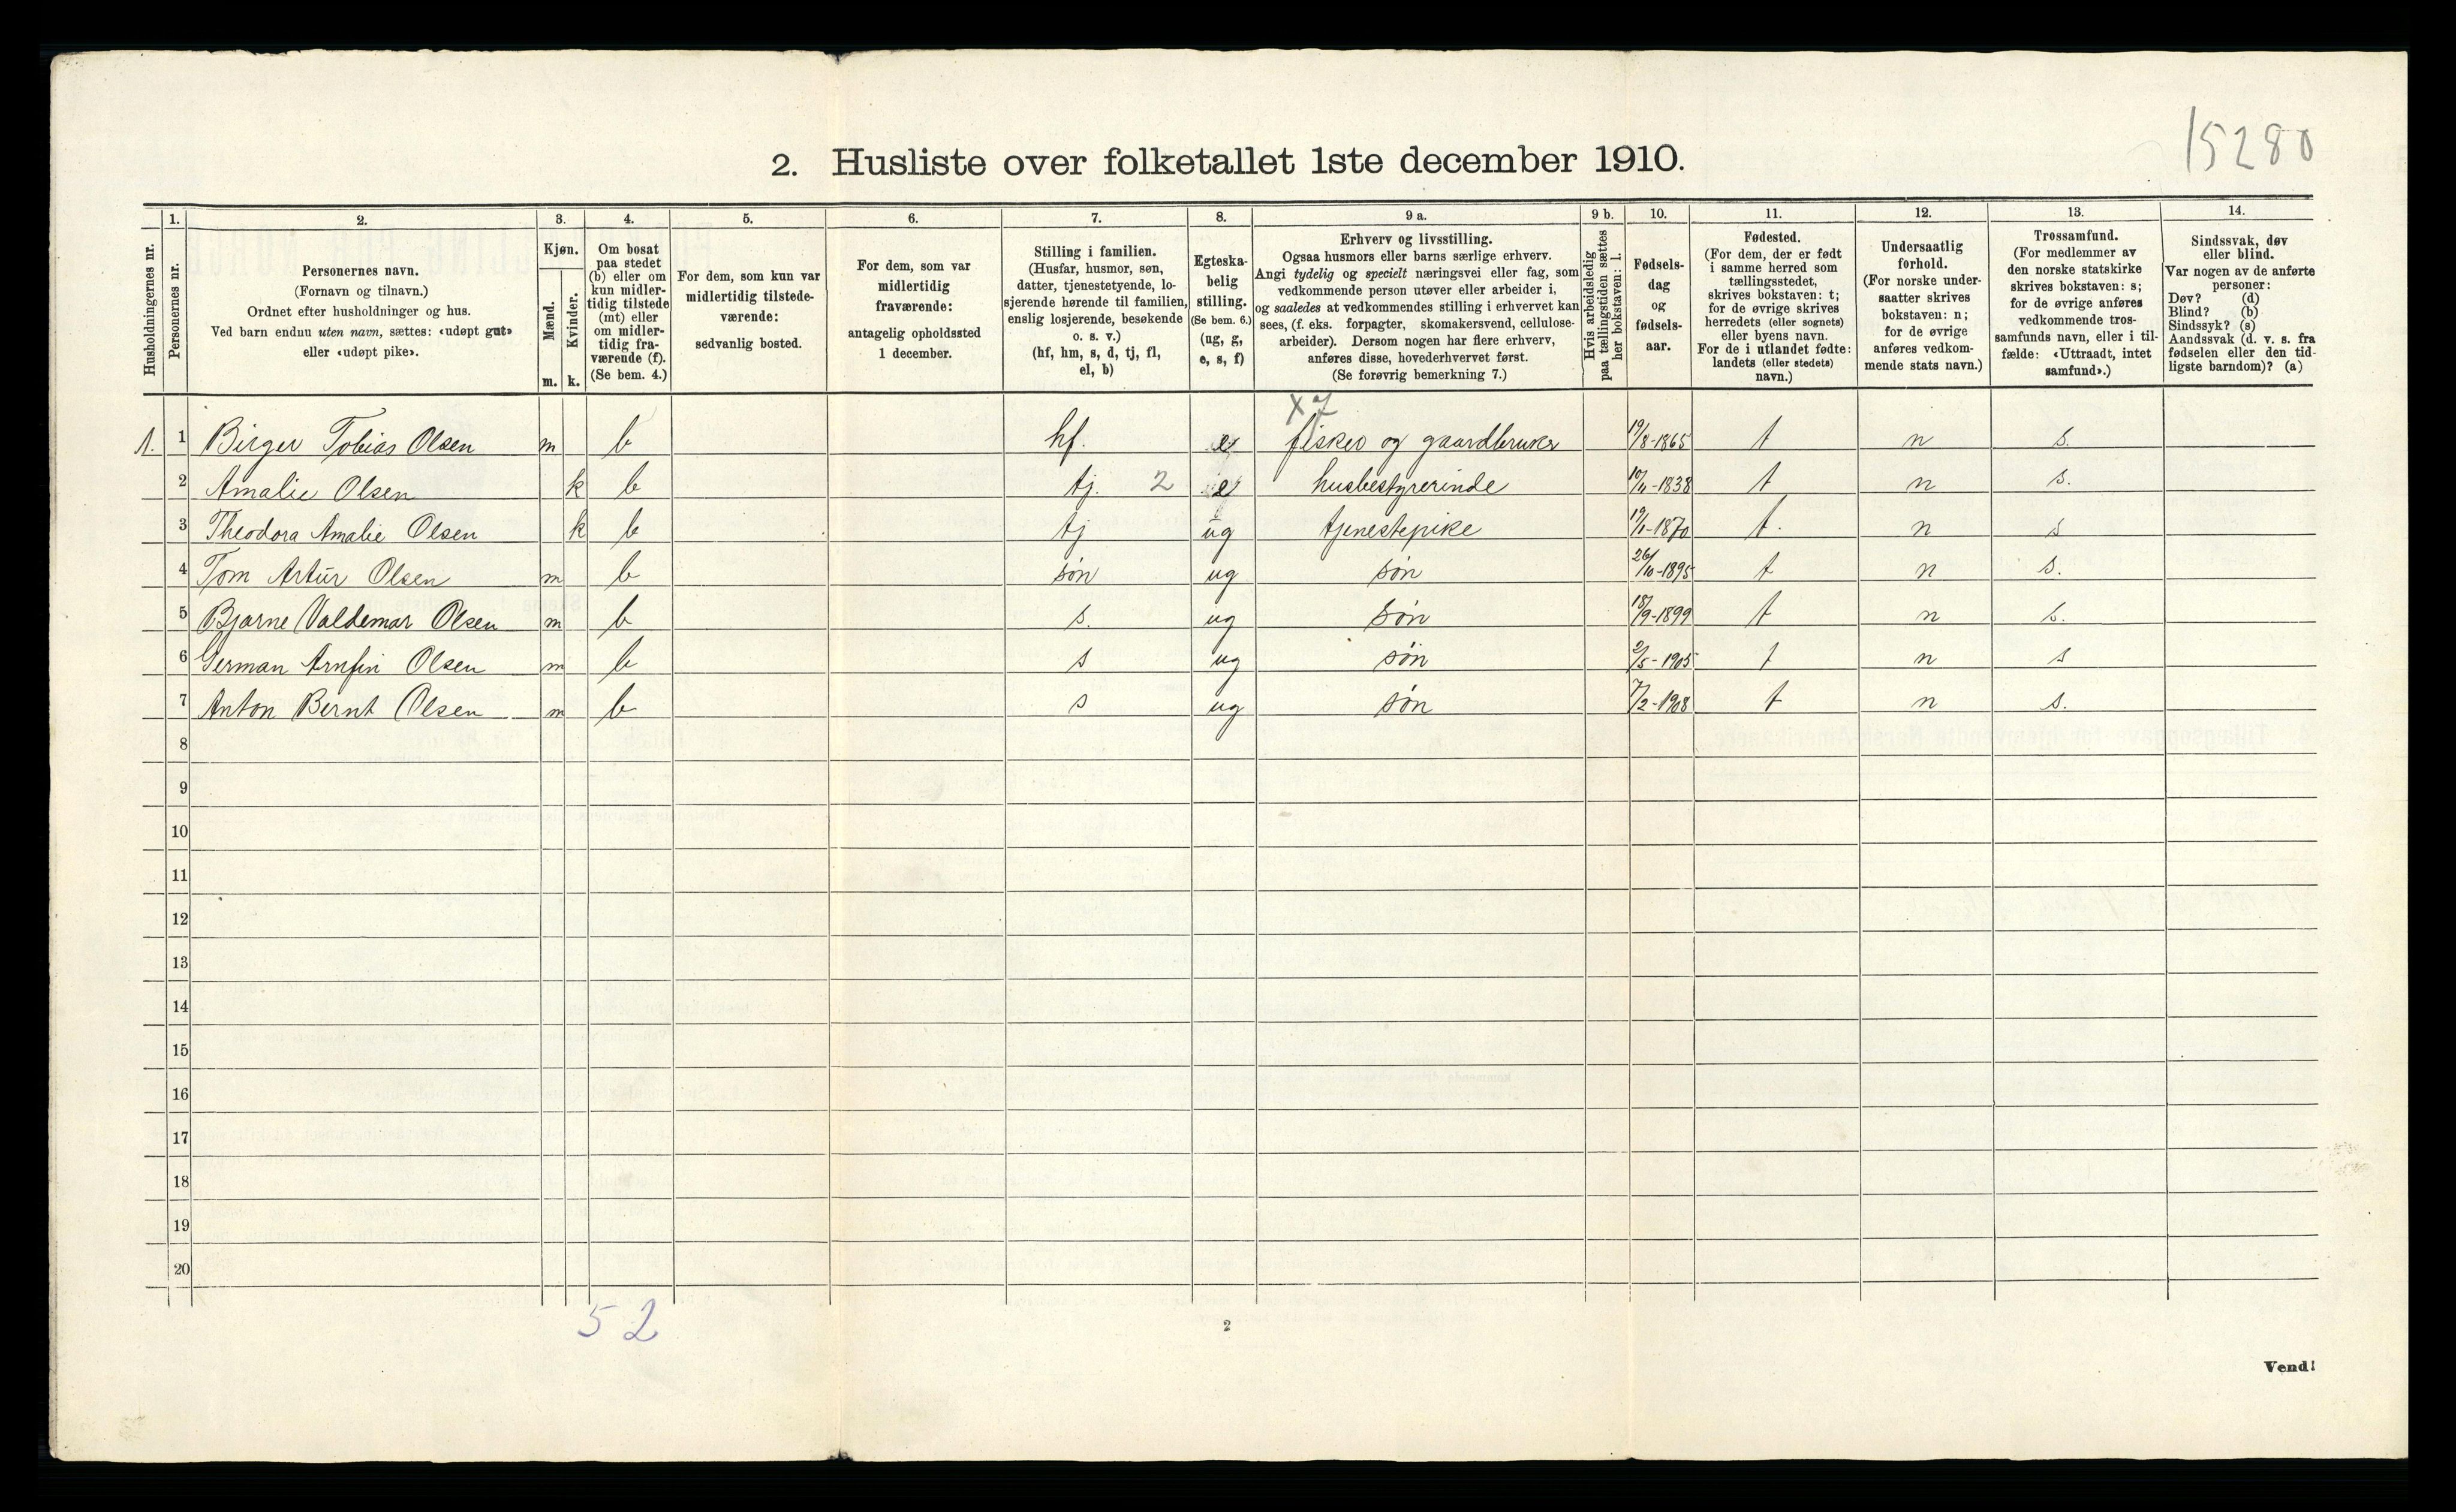 15280
2. Husliste over folketallet 1ste december 1910.
Husholdningernes nr.
1.
Personernes nr.
2.
Personernes navn.
(Fornavn og tilnavn.)
Ordnet efter husholdninger og hus.
Ved barn endnu uten navn, sættes: «udøpt gut»
eller «udøpt pike».
3.
Kjøn.
Mænd.
Kvinder.
m. k.
4.
Om bosat
paa stedet
(b) eller om
kun midler-
tidig tilstede
(mt) eller
om midler-
tidig fra-
værende (f).
(Se bem. 4.)
5.
For dem, som kun var
midlertidig tilstede-
værende:
sedvanlig bosted.
6.
For dem, som var
midlertidig
fraværende:
antagelig opholdssted
1 december.
7.
Stilling i familien.
(Husfar, husmor, søn,
datter, tjenestetyende, lo-
sjerende hørende til familien,
enslig losjerende, besøkende
o. s. v.)
(hf, hm, s, d, tj, fl,
el, b)
8.
Egteska-
belig
stilling.
(Se bem. 6.)
(ug, g,
e, s, f)
9 a.
Erhverv og livsstilling.
Ogsaa husmors eller barns særlige erhverv.
Angi tydelig og specielt næringsvei eller fag, som
vedkommende person utøver eller arbeider i,
og saaledes at vedkommendes stilling i erhvervet kan
sees, (f. eks. forpagter, skomakersvend, cellulose-
arbeider). Dersom nogen har flere erhverv,
anføres disse, hovederhvervet først.
(Se forøvrig bemerkning 7.)
9 b.
Hvis arbeidsledig
paa tællingstiden sættes
her bokstaven: l.
10.
Fødsels-
dag
og
fødsels-
aar.
11.
Fødested.
(For dem, der er født
i samme herred som
tællingsstedet,
skrives bokstaven: t;
for de øvrige skrives
herredets (eller sognets)
eller byens navn.
For de i utlandet fødte:
landets (eller stedets)
navn.)
12.
Undersaatlig
forhold.
(For norske under-
saatter skrives
bokstaven: n;
for de øvrige
anføres vedkom-
mende stats navn.)
13.
Trossamfund.
(For medlemmer av
den norske statskirke
skrives bokstaven: s;
for de øvrige anføres
vedkommende tros-
samfunds navn, eller i til-
fælde: «Uttraadt, intet
samfund».)
14.
Sindssvak, døv
eller blind.
Var nogen av de anførte
personer:
Døv? (d)
Blind? (b)
Sindssyk? (s)
Aandssvak (d. v. s. fra
fødselen eller den tid-
ligste barndom)? (a)
x 7
1. 1 Birger Tobias Olsen m b hf. e fisker og gaardbruker 19/8-1865 t n s.
2 Amalie Olsen k b tj. 2 e husbestyrerinde 10/4-1838 t n s.
3 Theodora Amalie Olsen k b tj ug tjenestepike 19/1-1870 t. n s
4 Tom Artur Olsen m b søn ug søn 26/10-1895 t n s.
5 Bjarne Valdemar Olsen m b s. ug søn 18/9-1899 t n s.
6 German Arnfin Olsen m b s ug søn 2/5-1905 t n s
7 Anton Bernt Olsen m b s ug søn 7/2-1908 t n s.
8
9
10
11
12
13
14
15
16
17
18
19
20
5 2
2
Vend!